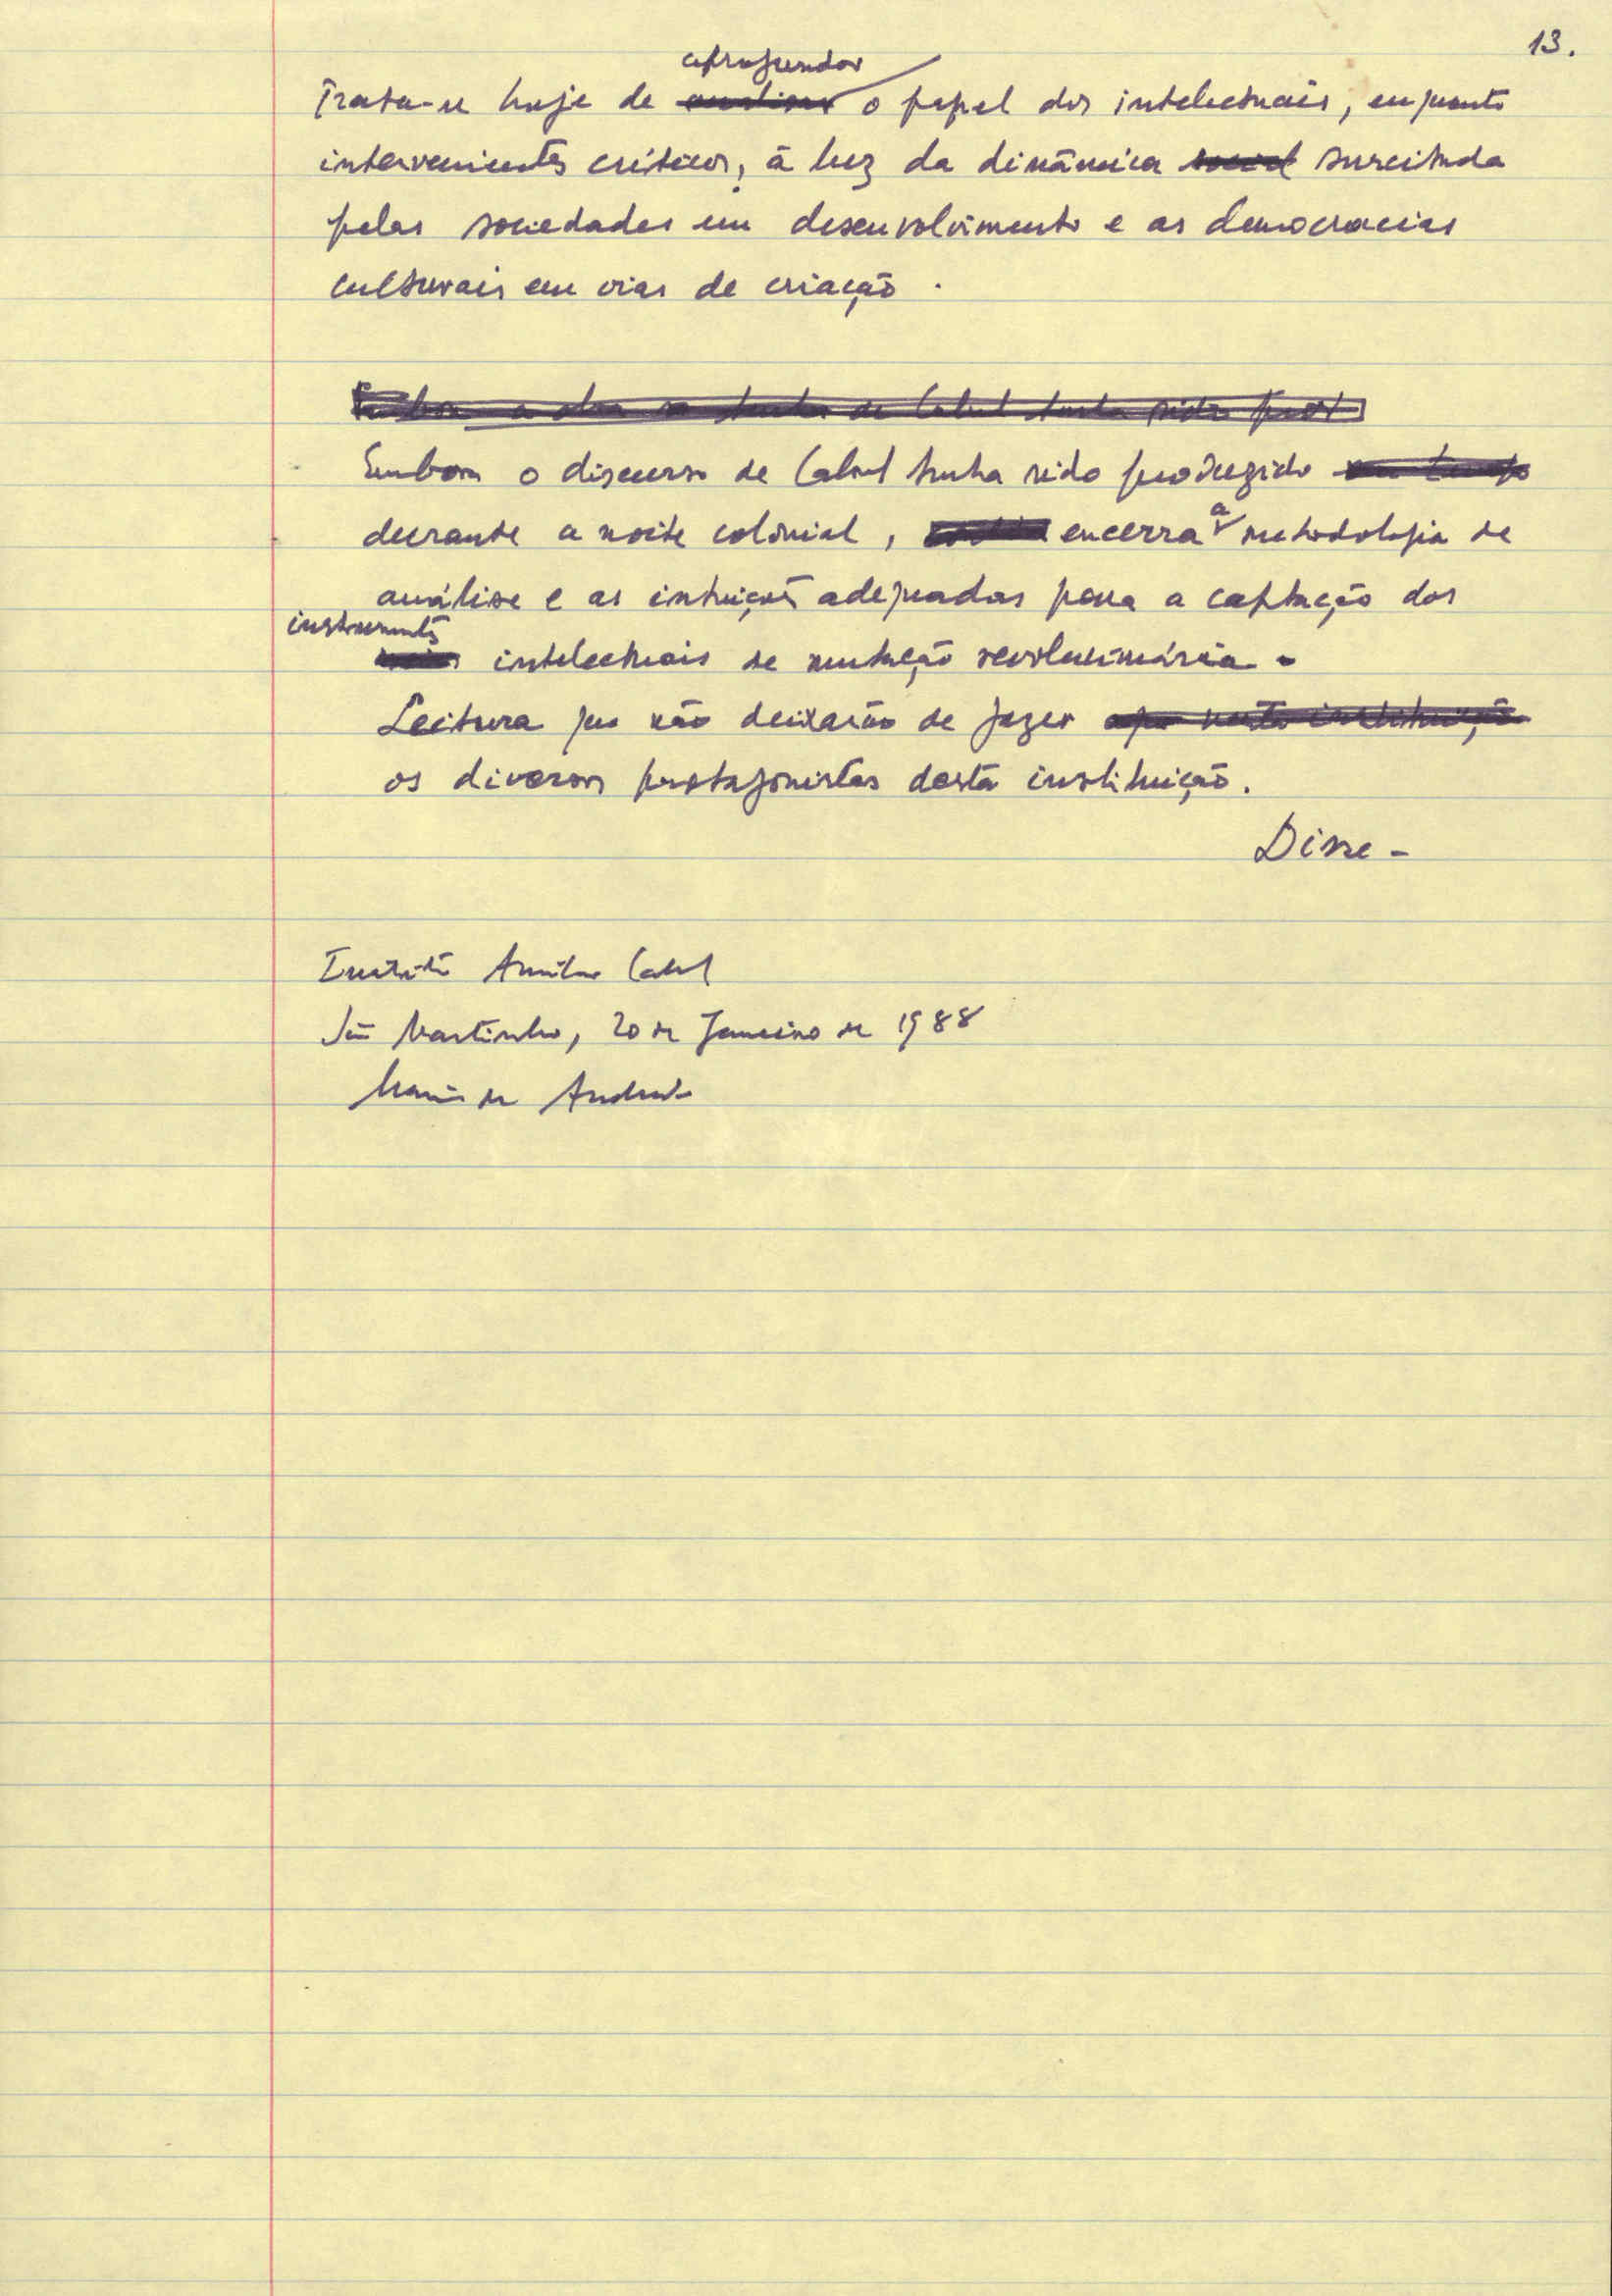 13.
aprofundar
Trata-se hoje de analisar o papel dos intelectuais, enquanto
intervenientes críticos, à luz da dinâmica social suscitada
pelas sociedades em desenvolvimento e as democracias
culturais em vias de criação.
Embora a obra de Cabral tenha sido
Embora o discurso de Cabral tenha sido produzido em tempo
durante a noite colonial, encerra a metodologia de
análise e as intuições adequadas para a captação dos
instrumentos
intelectuais de mutação revolucionária.
Leitura que não deixarão de fazer nesta instituição
os diversos protagonistas desta instituição.
Disse -
Instituto Amílcar Cabral
São Martinho, 20 de Janeiro de 1988
Mário de Andrade